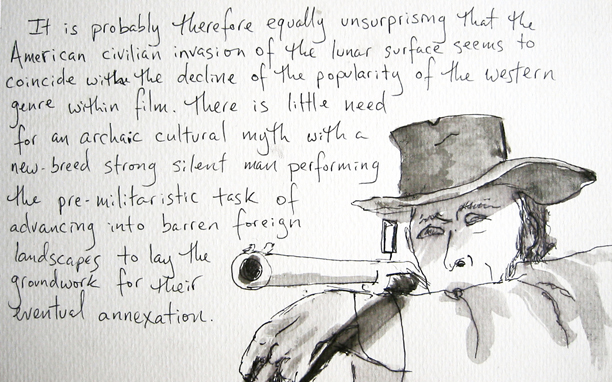 It is probably therefore equally unsurprising that the
American civilian invasion of the lunar surface seems to
coincide with the decline of the popularity of the western
genre within film. There is little need
for an archaic cultural myth with a
new-breed strong silent man performing
the pre-militaristic task of
advancing into barren foreign
landscapes to lay the
groundwork for their
eventual annexation.